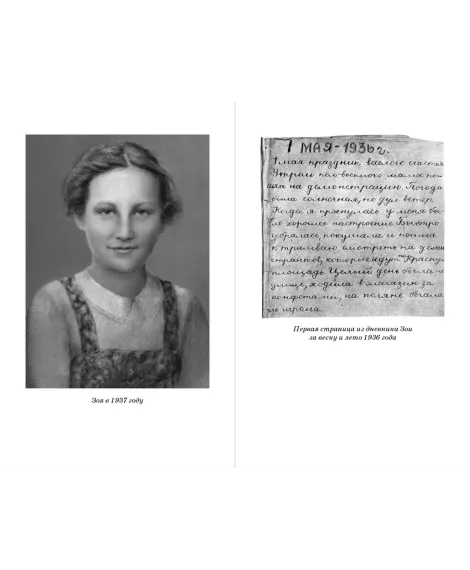 Зоя в 1937 году
1 МАЯ-1936 г.
1 мая праздник, веселого счастья
Утром пол-восьмого мама по-
шла на демонстрацию. Погода
была солнечная, но дул ветер
Когда я проснулась у меня бы-
ло хорошее настроение. Быстро
убралась, покушала и пошла
к трамваю смотреть на демон
странтов, которые идут на Красную
площадь. Целый день была на
улице, ходила в магазин за
конфетами, на поляне бегала
и играла
Первая страница из дневника Зои
за весну и лето 1936 года